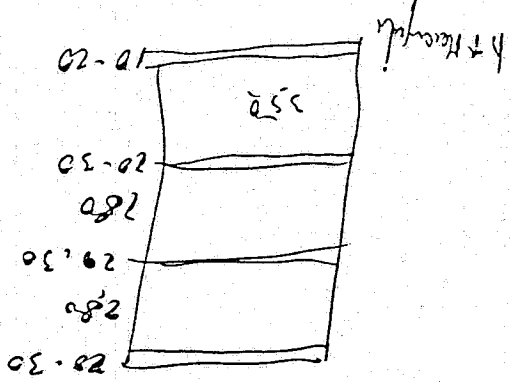 20-30
2,80
20,30
280
20-30
3,50
10-20